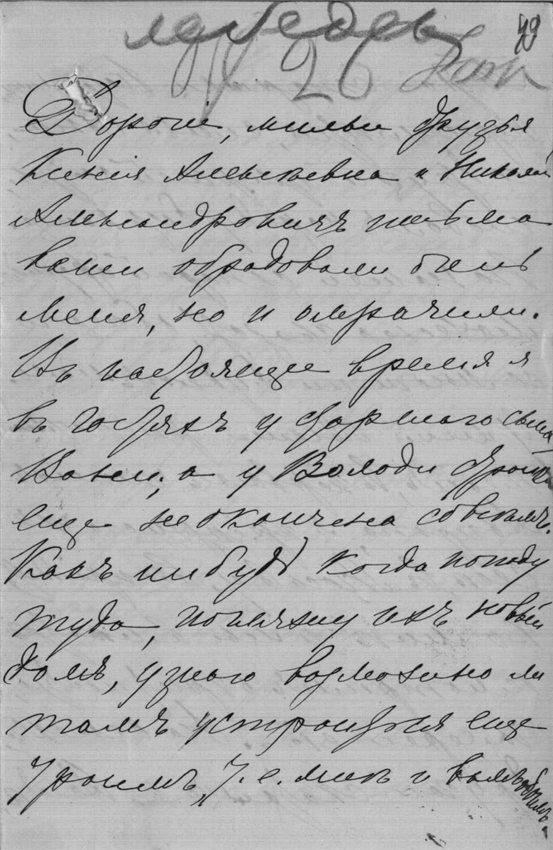 29
26
Дорогіе, милые друзья
Ксенія Алексѣевна и Николай
Александровичъ письма
ваши обрадовали очень
меня, но и омрачили.
Въ настоящее время я
въ гостяхъ у старшаго сына
Вани, а у Володи
еще не окончена совсѣмъ.
Какъ нибудь когда поѣду
туда, погляжу ихъ новый
домъ, узнаю возможно ли
тамъ устроиться еще
троимъ, т.е. мнѣ и вамъ обоимъ.